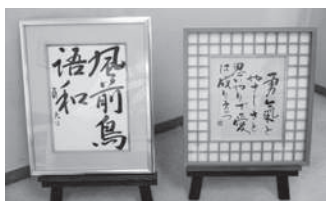 風前鳥
語和
勇氣と
やさしさと
思いやりで愛
は成り立つ